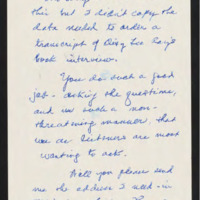 this but I didn't copy the
data needed to order a
transcript of
book interview.
You do such a good
job - asking the questions,
and in such a non-
threatening manner, that
we as listeners are most
wanting to act.
Will you please send
me the address I need - in